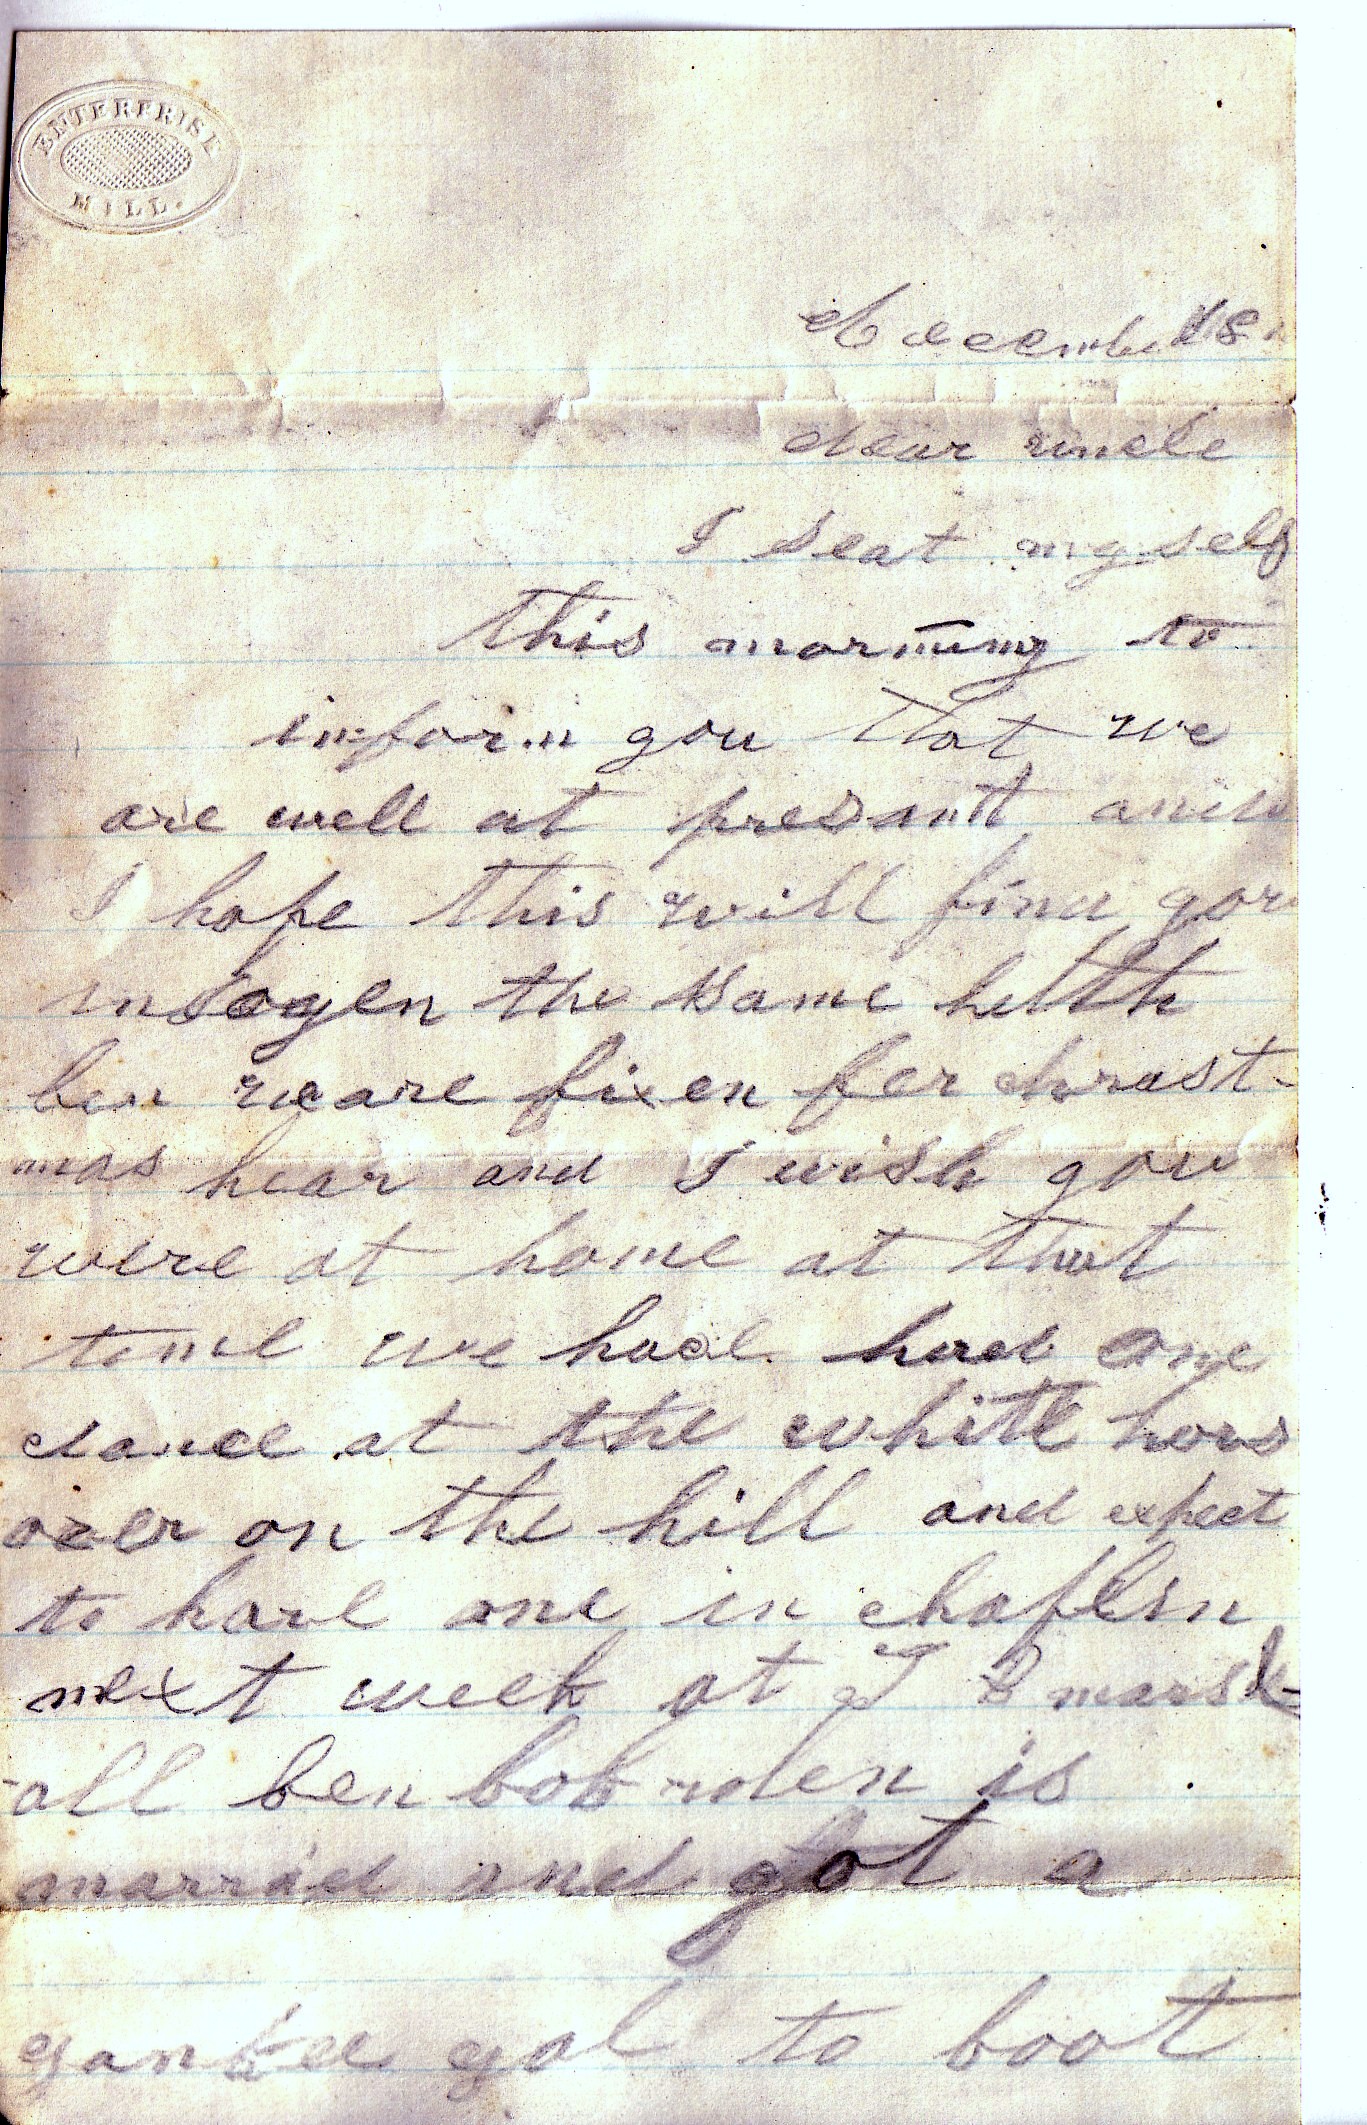 ENTERPRISE
MILL.
December 18
dear uncle
I seat my self
this morning to
inform you that we
are well at presant and
I hope this will find you
the same helth
ben we are fixen fer chrast-
mas hear and I wish you
were at home at that
time we have had one
dance at the white hous
over on the hill and expect
to have one in chaplin
next week at J B marsh-
-all ben bob is
married and got a
yankee gal to boot